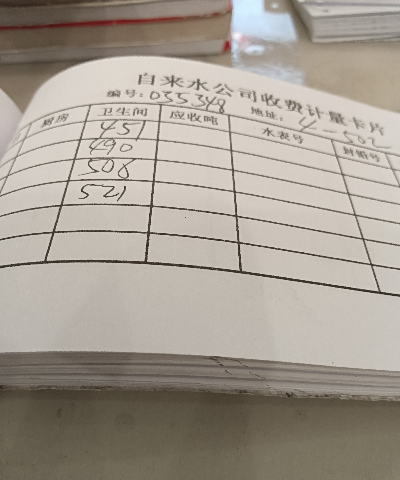 自来水公司收费计量卡片
编号:035348 地址:4-502
厨房 卫生间 应收吨 水表号
451
490
508
521